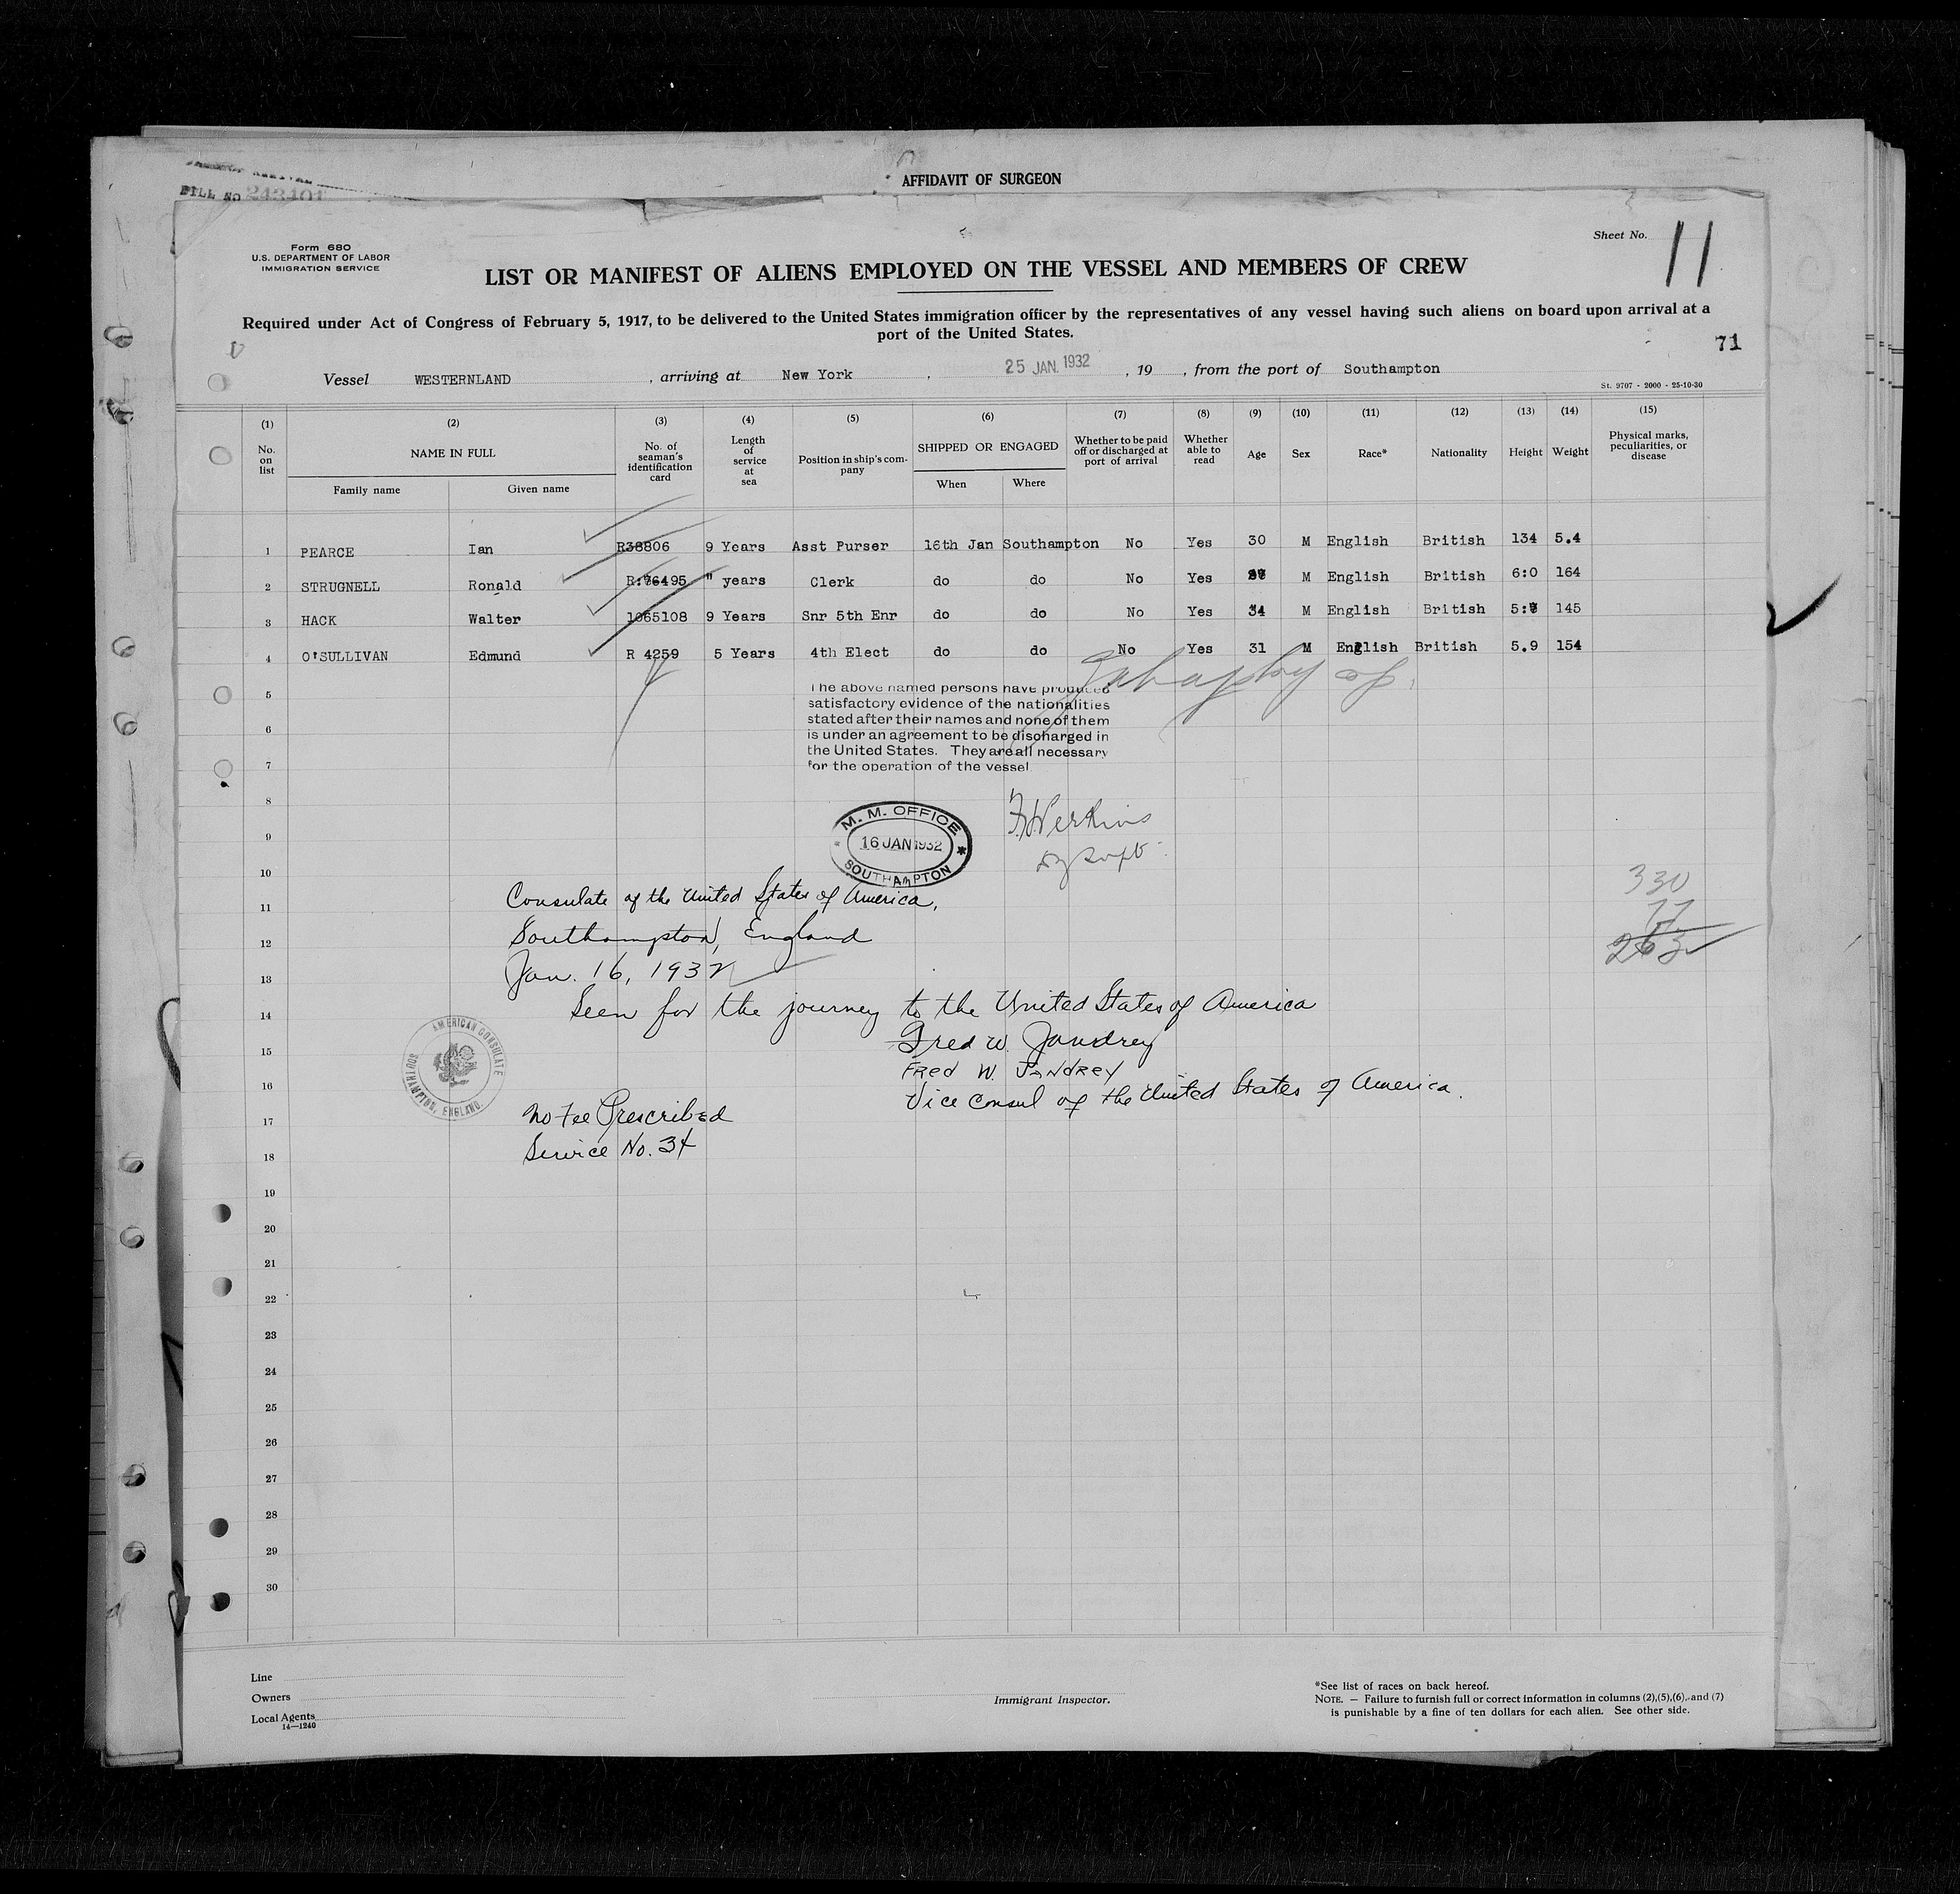 AFFIDAVIT OF SURGEON
FILL NO 243401
Form 680
U.S. DEPARTMENT OF LABOR
IMMIGRATION SERVICE
Sheet No. 11
LIST OR MANIFEST OF ALIENS EMPLOYED ON THE VESSEL AND MEMBERS OF CREW
Required under Act of Congress of February 5, 1917, to be delivered to the United States immigration officer by the representatives of any vessel having such aliens on board upon arrival at a
port of the United States.
71
Vessel WESTERNLAND , arriving at New York , 25 JAN. 1932 , 19 , from the port of Southampton
St. 9707 - 2000 - 25-10-30
(1) (2) (3) (4) (5) (6) (7) (8) (9) (10) (11) (12) (13) (14) (15)
No. on list
NAME IN FULL
Family name Given name
No. of seaman's identification card
Length of service at sea
Position in ship's company
SHIPPED OR ENGAGED
When Where
Whether to be paid off or discharged at port of arrival
Whether able to read
Age
Sex
Race*
Nationality
Height
Weight
Physical marks, peculiarities, or disease
1 PEARCE Ian R38806 9 Years Asst Purser 16th Jan Southampton No Yes 30 M English British 134 5.4
2 STRUGNELL Ronald R:76495 " years Clerk do do No Yes M English British 6:0 164
3 HACK Walter 1065108 9 Years Snr 5th Enr do do No Yes 34 M English British 5: 145
4 O'SULLIVAN Edmund R 4259 5 Years 4th Elect do do No Yes 31 M English British 5.9 154
5
The above named persons have produced
satisfactory evidence of the nationalities
stated after their names and none of them
6
is under an agreement to be discharged in
the United States. They are all necessary
7
for the operation of the vessel
8
M. M. OFFICE
16 JAN 1932
SOUTHAMPTON
9
10
330
77
263
Consulate of the United States of America,
11
Southampton, England
12
Jan. 16, 1932
13
Seen for the journey to the United States of America
14
Fred W. Jandrey
15
FRED W. JANDREY
16
Vice Consul of the United States of America.
AMERICAN CONSULATE
SOUTHAMPTON, ENGLAND.
No Fee Prescribed
17
Service No. 34
18
19
20
21
22
23
24
25
26
27
28
29
30
Line
Owners
Local Agents
14—1240
Immigrant Inspector.
*See list of races on back hereof.
NOTE. — Failure to furnish full or correct information in columns (2),(5),(6), and (7)
is punishable by a fine of ten dollars for each alien. See other side.